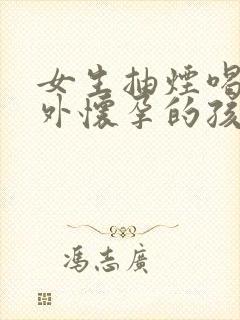 女生抽煙喝
外懷孕的孩
馮志廣